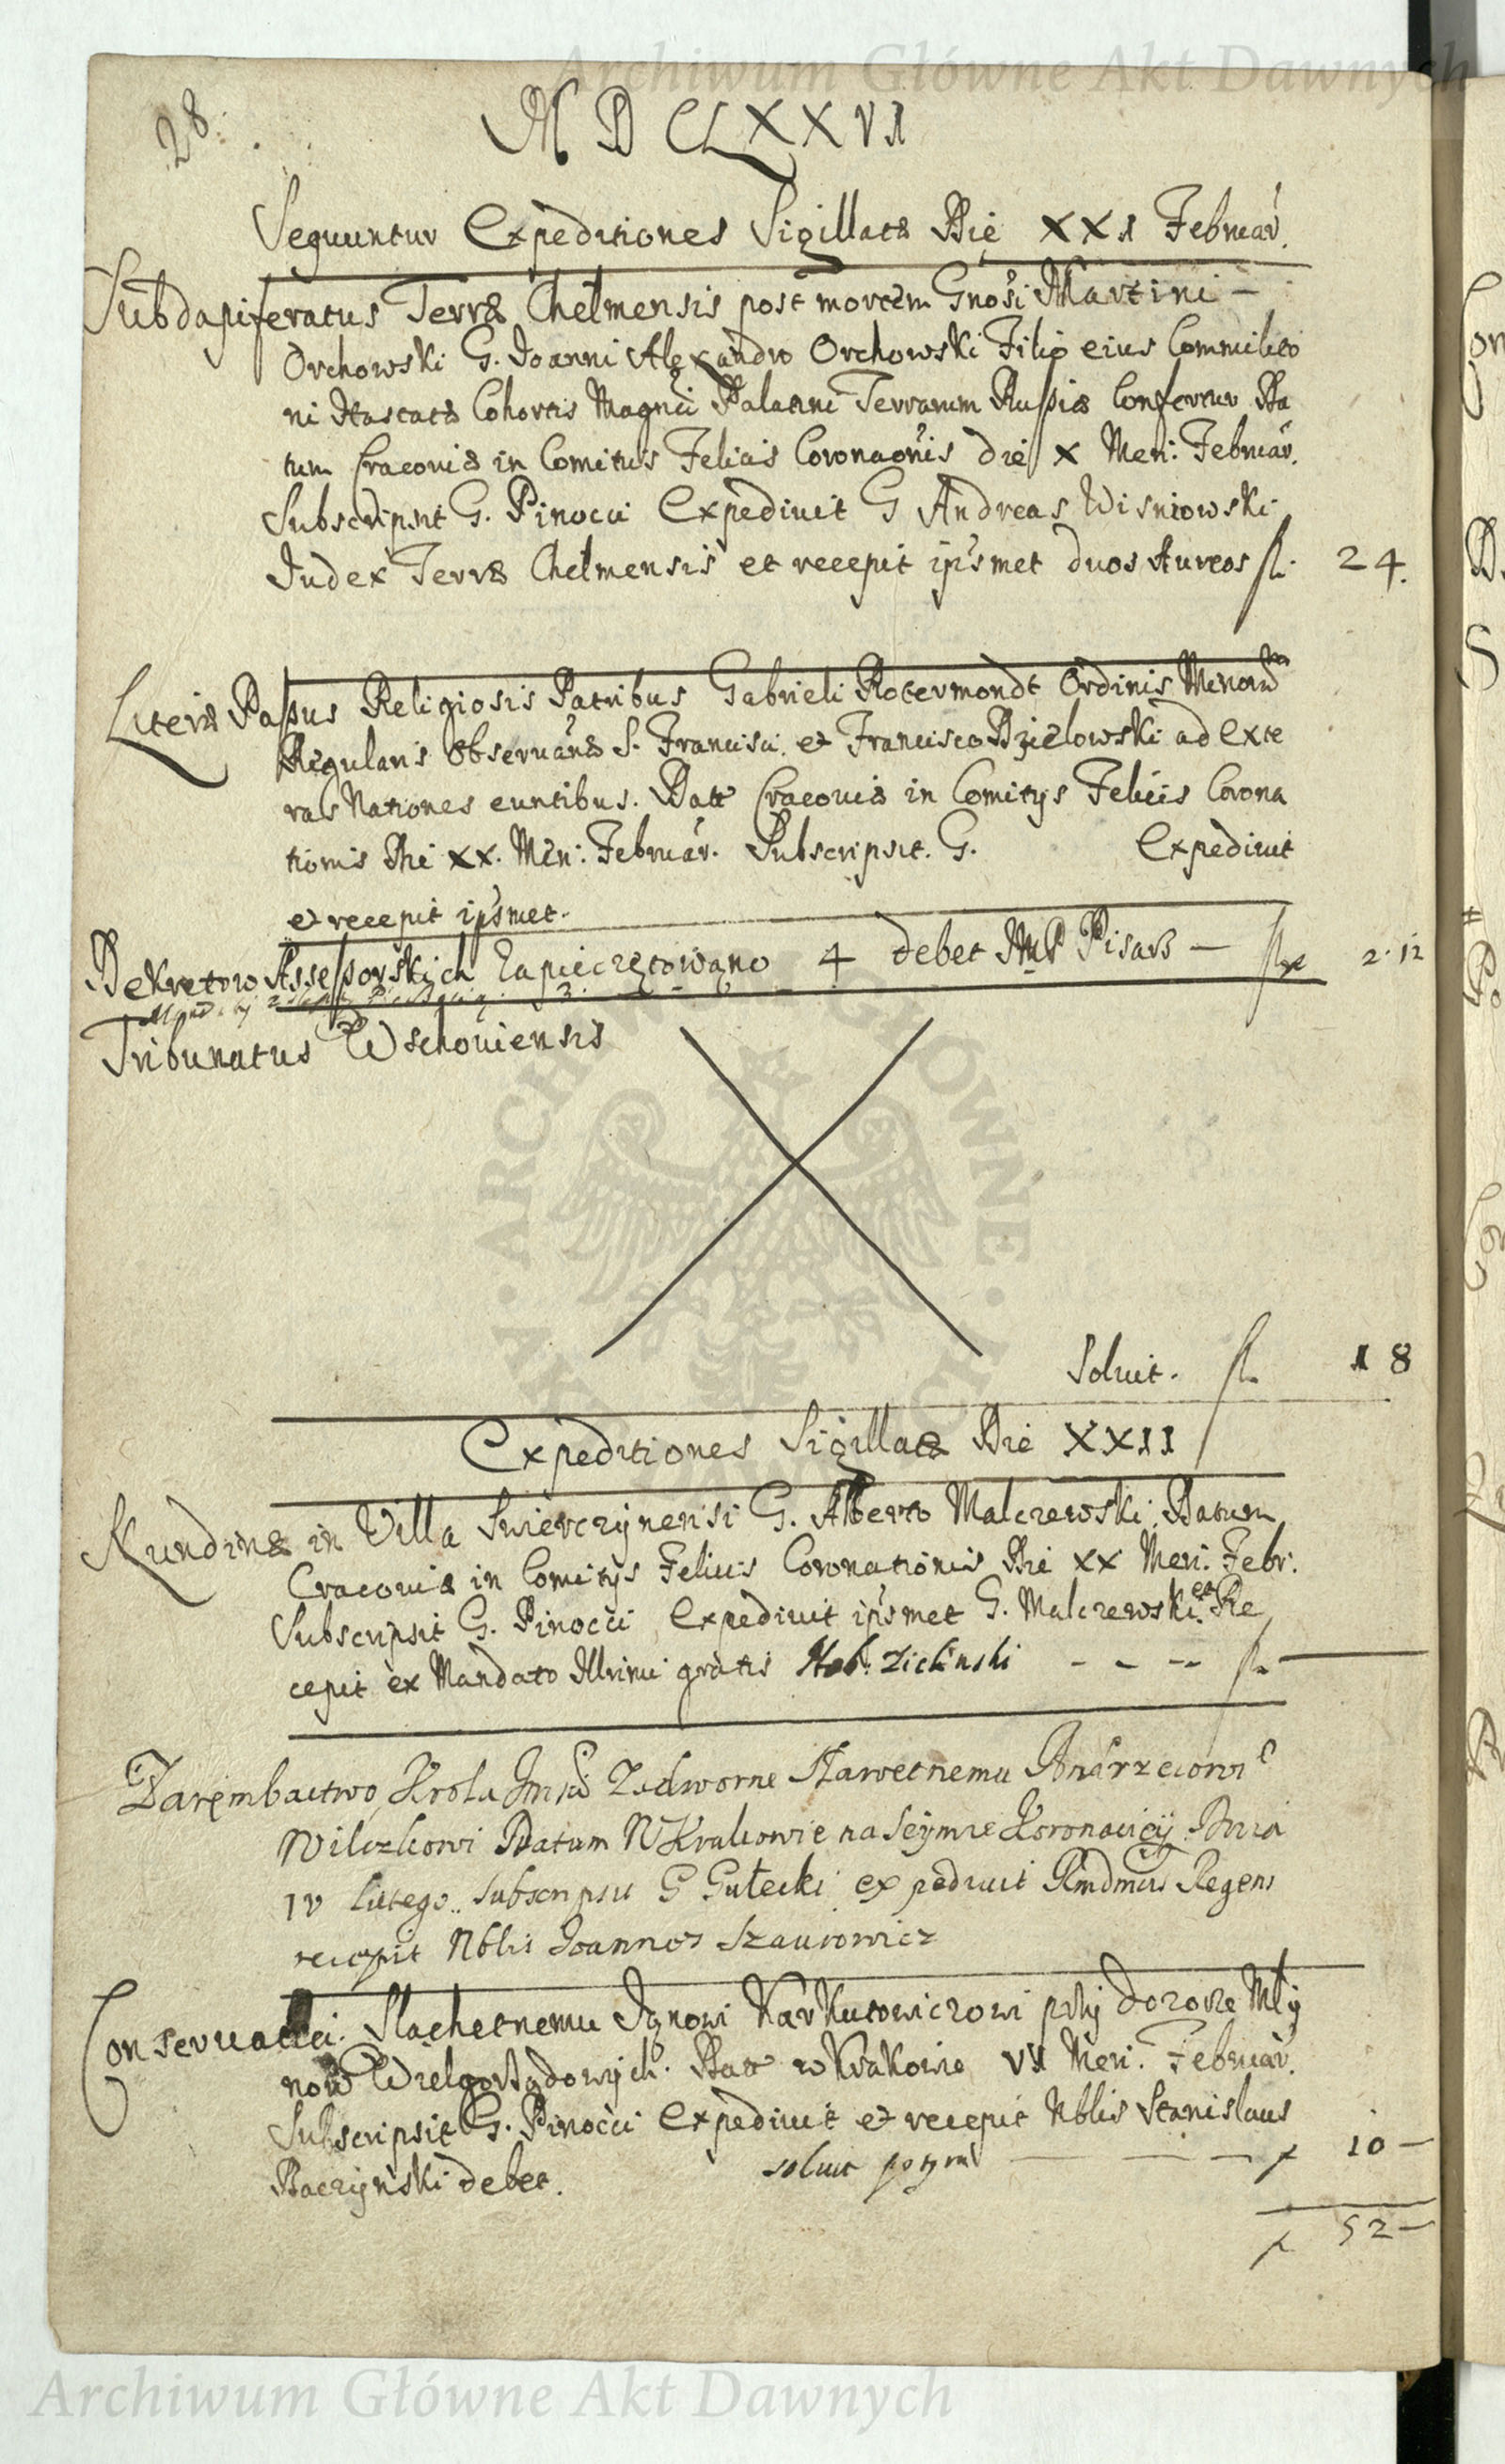 Archiwum Główne Akt Dawnych
28.
MDCLXXVI
Sequuntur Expeditiones Sigillatæ Die XXI Februar.
Subdapiferatus Terræ Chelmensis post mortem Gnosi Martini –
Orchowski G. Joanni Alexandro Orchowski Filio eius Commilito
ni Hastatæ Cohortis Magnci Palatini Terrarum Russiæ Confertur Da
tum Cracoviæ in Comitiis Felicis Coronaonis die X Men: Februar.
Subscripsit G. Pinocci Expedivit G Andreas Wisniowski
Judex Terræ Chelmensis et recepit ipsmet duos Aureos fl. 24.
Literæ Passus Religiosis Patribus Gabrieli Rotermondt Ordinis Minorum
Regularis Observanæ S. Francisci et Francisco Dzielowski ad Exte
ras Nationes euntibus. Datt Cracoviæ in Comitys Felicis Corona
tionis Die XX. Men: Februar. Subscripsit. G. Expedivit
et recepit ipsmet.
Dekretow Assessorskich Zapieczętowano 4 debet JmP Pisarz – fl. 2.12
Tribunatus Wschoviensis
Solvit. fl. 18
Expeditiones Sigillatæ Die XXII
Nundinæ in Villa Swierczynensi G. Alberto Malczewski. Datum
Cracoviæ in Comitys Felicis Coronationis Die XX Men. Febr.
Subscripsit G. Pinocci Expedivit ipsmet G. Malczewski et Re
cepit ex Mandato Illrimi gratis Nob: Zielinski - - - fl. –
Zarembactwo Krola Jmści Zadworne Sławetnemu Andrzeiowi
Wilczkowi Datum W Krakowie na Seymie Koronacicy Dnia
IV lutego. Subscripsit G Gutecki expedivit Rmdmus Regens
recepit Nblis Joannes Szaurowicz
Conservacia. Slachetnemu Janowi Karkutowiczowi przy dozorze Mły
now Wielgorządowych. Datt w Krakowie VI Men. Februar.
Subscripsit G. Pinocci Expedivit et recepit Nblis Stanislaus
Baczynski debet. solvit potym – – – f 10 –
f 52 –
Archiwum Główne Akt Dawnych